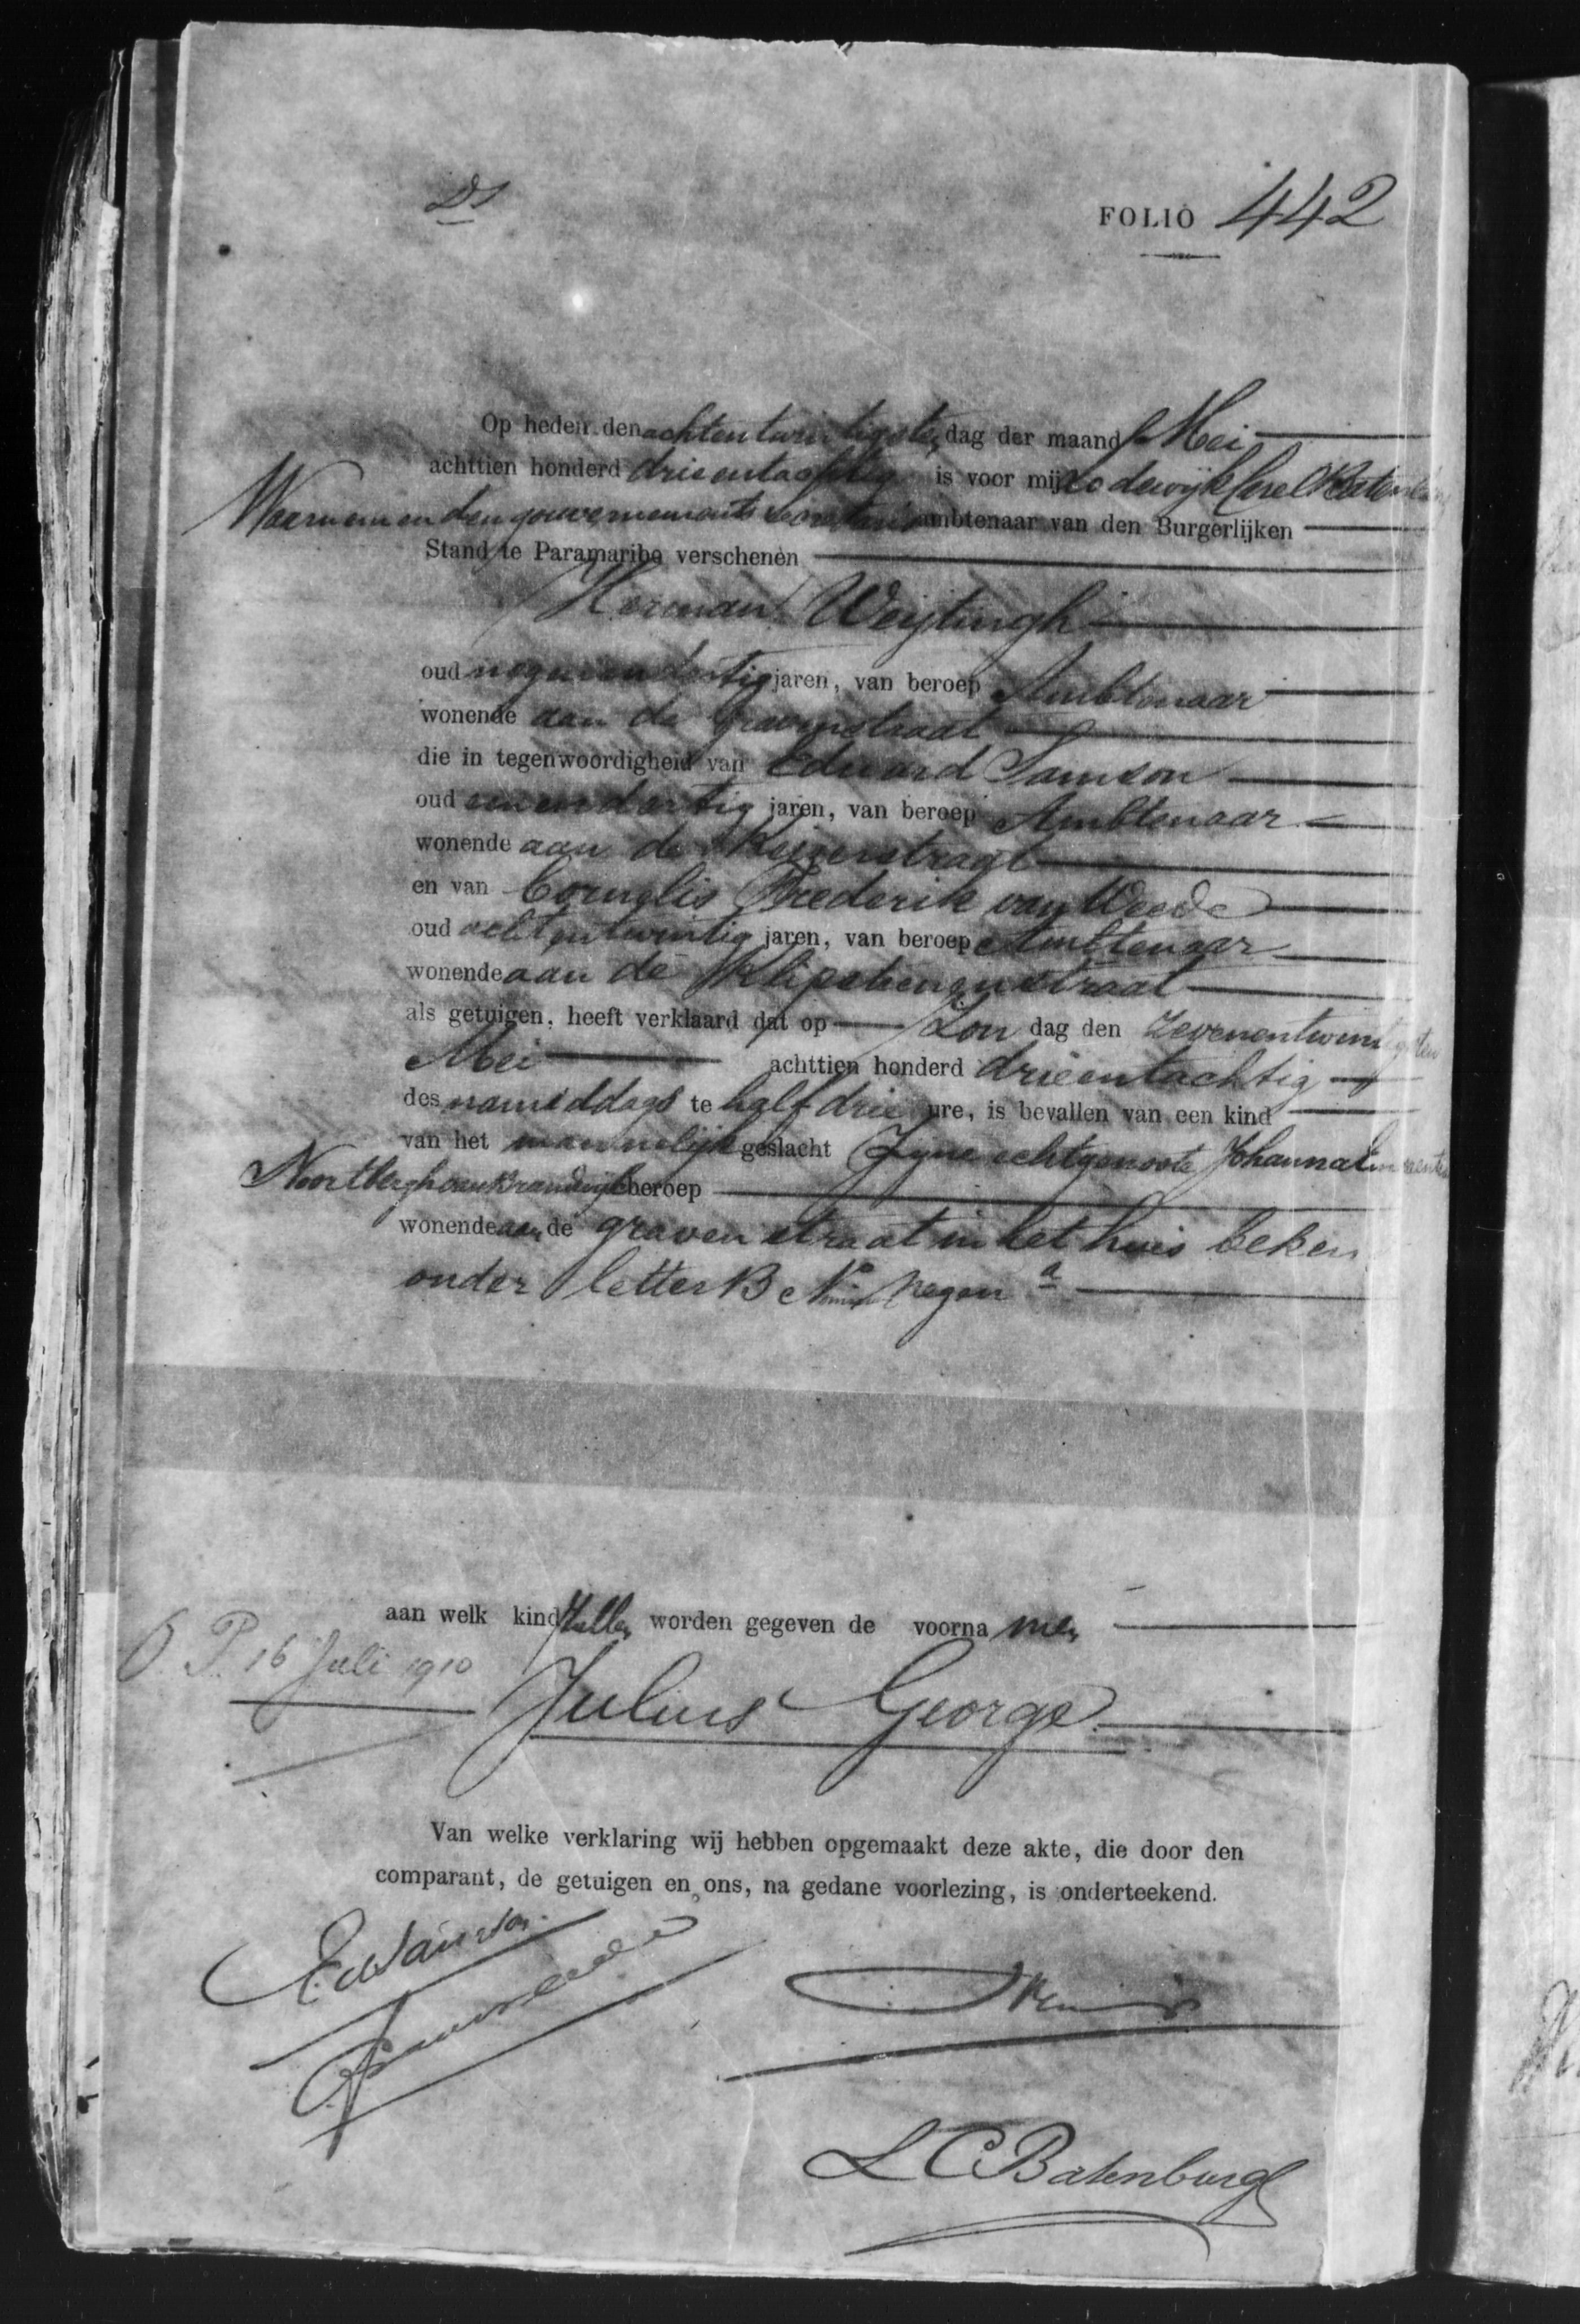 Ds
FOLIO 442
Op heden den achtentwintigsten dag der maand Mei
achttien honderd drieentachtig is voor mij Lodewijk Carel Batenburg
Waarnemenden gouvernements secretaris ambtenaar van den Burgerlijken
Stand te Paramaribo verschenen
Herman Weijtingh
oud negenendertig jaren, van beroep Ambtenaar
wonende aan de Gravenstraat
die in tegenwoordigheid van Eduard Samson
oud eenendertig jaren, van beroep Ambtenaar
wonende aan de Keizerstraat
en van Cornelis Frederik van Weede
oud achtentwintig jaren, van beroep Ambtenaar
wonende aan de Klipsteenenstraat
als getuigen, heeft verklaard dat op Zon dag den zevenentwintigsten
Mei achttien honderd drieentachtig
des namiddags te half drie ure, is bevallen van een kind
van het mannelijk geslacht Zijne echtgenoote Johanna
beroep
wonende aan de gravenstraat in het huis beken
onder letter B Nummer negen a
aan welk kind zullen worden gegeven de voorna men
O. P. 16 Juli 1910
Julius George
Van welke verklaring wij hebben opgemaakt deze akte, die door den
comparant, de getuigen en ons, na gedane voorlezing, is onderteekend.
EdSamson
L C Batenburg